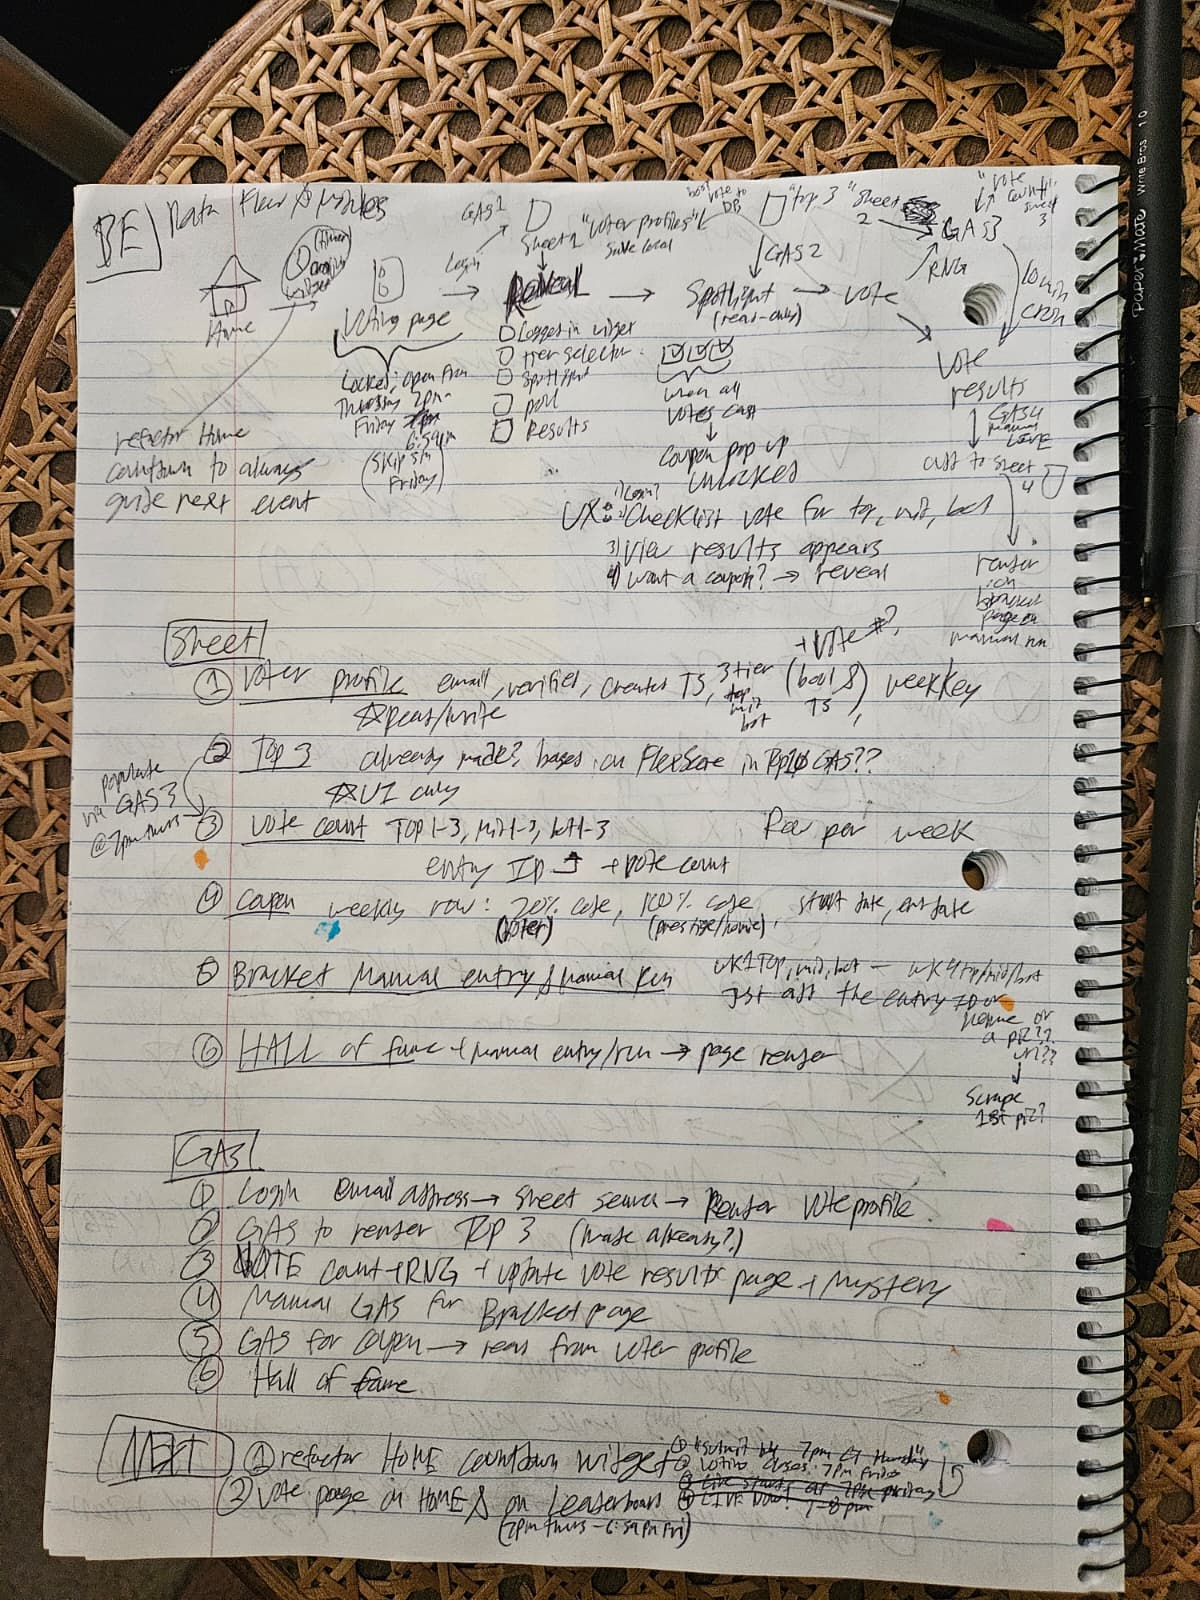 BE
Data Flow & Modules
Home
Voting page
Locked; open from
Thursday 7pm
Friday
6:59pm
(Skip 3rd
Friday)
refactor Home
countdown to always
guide next event
GAS1
Login
Sheet 1 "voter profiles"
save local
Reveal
Logged in widget
tier selector
Spotlight
poll
Results
vote to
DB
"top 3" sheet
2
GAS2
Spotlight
(read-only)
when all
votes cast
coupon pop up
unlocked
vote
RNG
GAS3
"vote
count"
sheet
3
cron
vote
results
GAS4
manual
LIVE
add to sheet
4
render
on
bracket
page on
manual run
UX: 1) Login?
2) Checklist vote for top, mid, bot
3) View results appears
4) want a coupon? → reveal
Sheet
① Voter profile email, verified, created TS, 3 tier top mid bot (bool & TS), weekkey
+ vote #?
☆read/write
② Top 3 already made? based on FlexScore in Top10 GAS??
☆UI only
populate
via GAS3
@7pm thurs
③ vote count TOP 1-3, mid 1-3, bot 1-3 Row per week
entry ID + vote count
④ Coupon weekly row: 20% code, 100% code, start date, end date
(voter) (prestige/home)
⑤ Bracket Manual entry & Manual Run wk1 Top, mid, bot — wk4 top/mid/bot
just add the entry ID or
name or
a pic??
url??
Scrape
1st pic?
⑥ HALL of fame + Manual entry/run → page render
GAS
① Login email address → sheet search → Render vote profile
② GAS to render Top 3 (made already?)
③ VOTE count + RNG + update vote results page + mystery
④ Manual GAS for Bracket page
⑤ GAS for coupon → read from voter profile
⑥ Hall of fame
NEXT
① refactor HOME countdown widget
① "submit by 7pm CT Thursday"
② Voting closes 7pm Friday
③ Live starts at 7pm Friday
④ LIVE now! 7-8pm
② Vote page on HOME & on Leaderboard
(7pm thurs - 6:59pm Fri)
PaperMate Write Bros 1.0